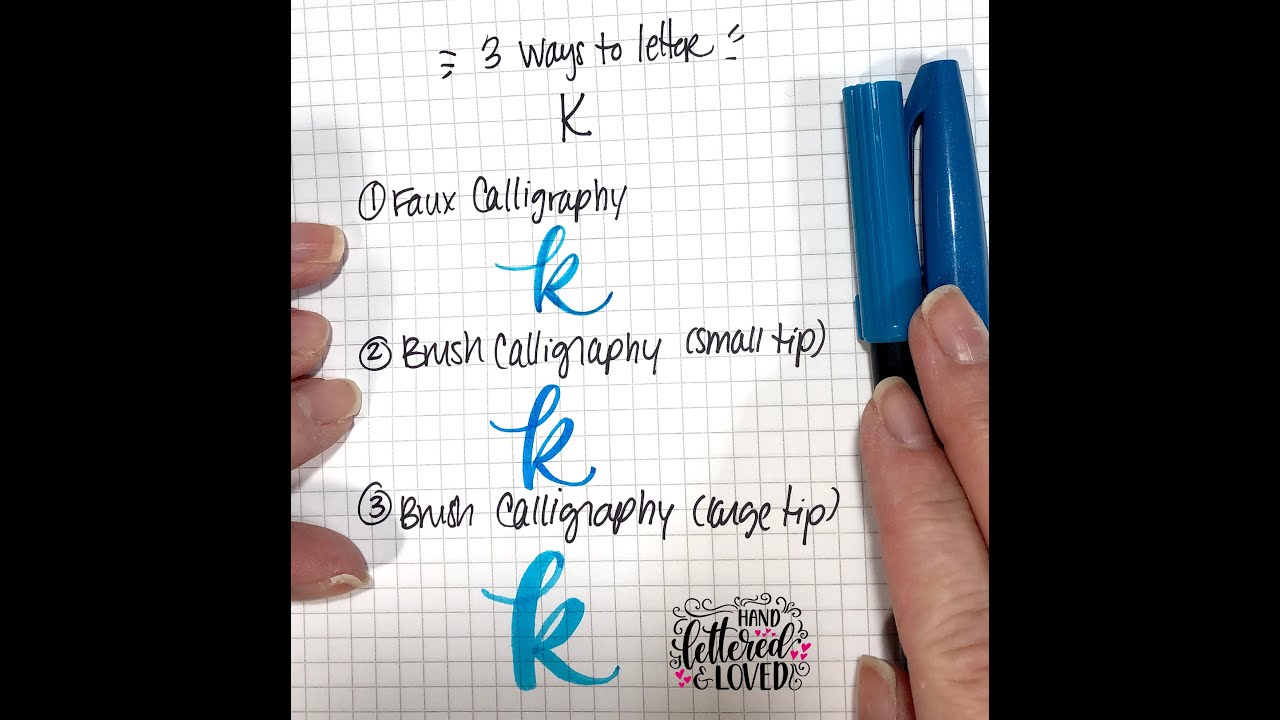 3 Ways to letter
K
① Faux Calligraphy
k
② Brush Calligraphy (small tip)
k
③ Brush Calligraphy (large tip)
k
HAND
lettered
& LOVED